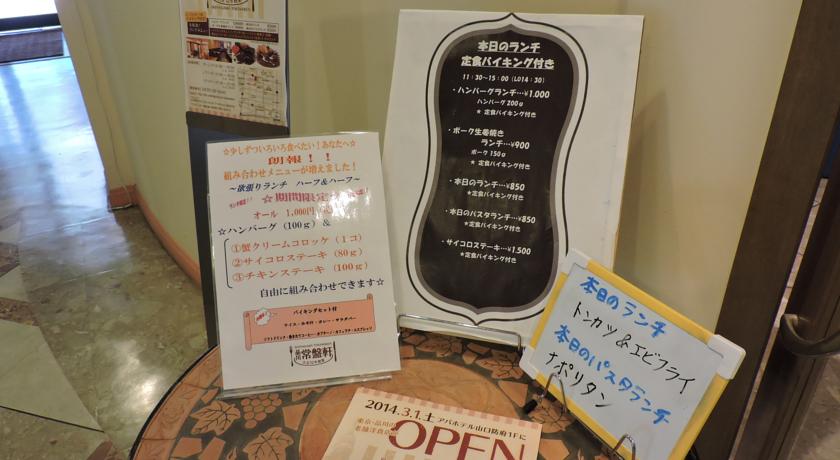 ☆少しずついろいろ食べたい！あなたへ☆
朗報！！
組み合わせメニューが増えました！
～欲張りランチ ハーフ&ハーフ～
☆期間限定
オール 1,000円
☆ハンバーグ（100g）&
①蟹クリームコロッケ（１コ）
②サイコロステーキ（80g）
③チキンステーキ（100g）
自由に組み合わせできます☆
バイキングセット付
常盤軒
本日のランチ
定食バイキング付き
11：30～15：00（LO14：30）
・ハンバーグランチ…¥1.000
ハンバーグ 200g
★ 定食バイキング付き
・ポーク生姜焼き
ランチ…¥900
ポーク 150g
★ 定食バイキング付き
・本日のランチ…¥850
★定食バイキング付き
・本日のパスタランチ…¥850
★定食バイキング付き
・サイコロステーキ…¥1.500
★定食バイキング付き
本日のランチ
トンカツ&エビフライ
本日のパスタランチ
ナポリタン
2014.3.1.土 アパホテル山口防府1Fに
東京・品川の
老舗洋食店
OPEN